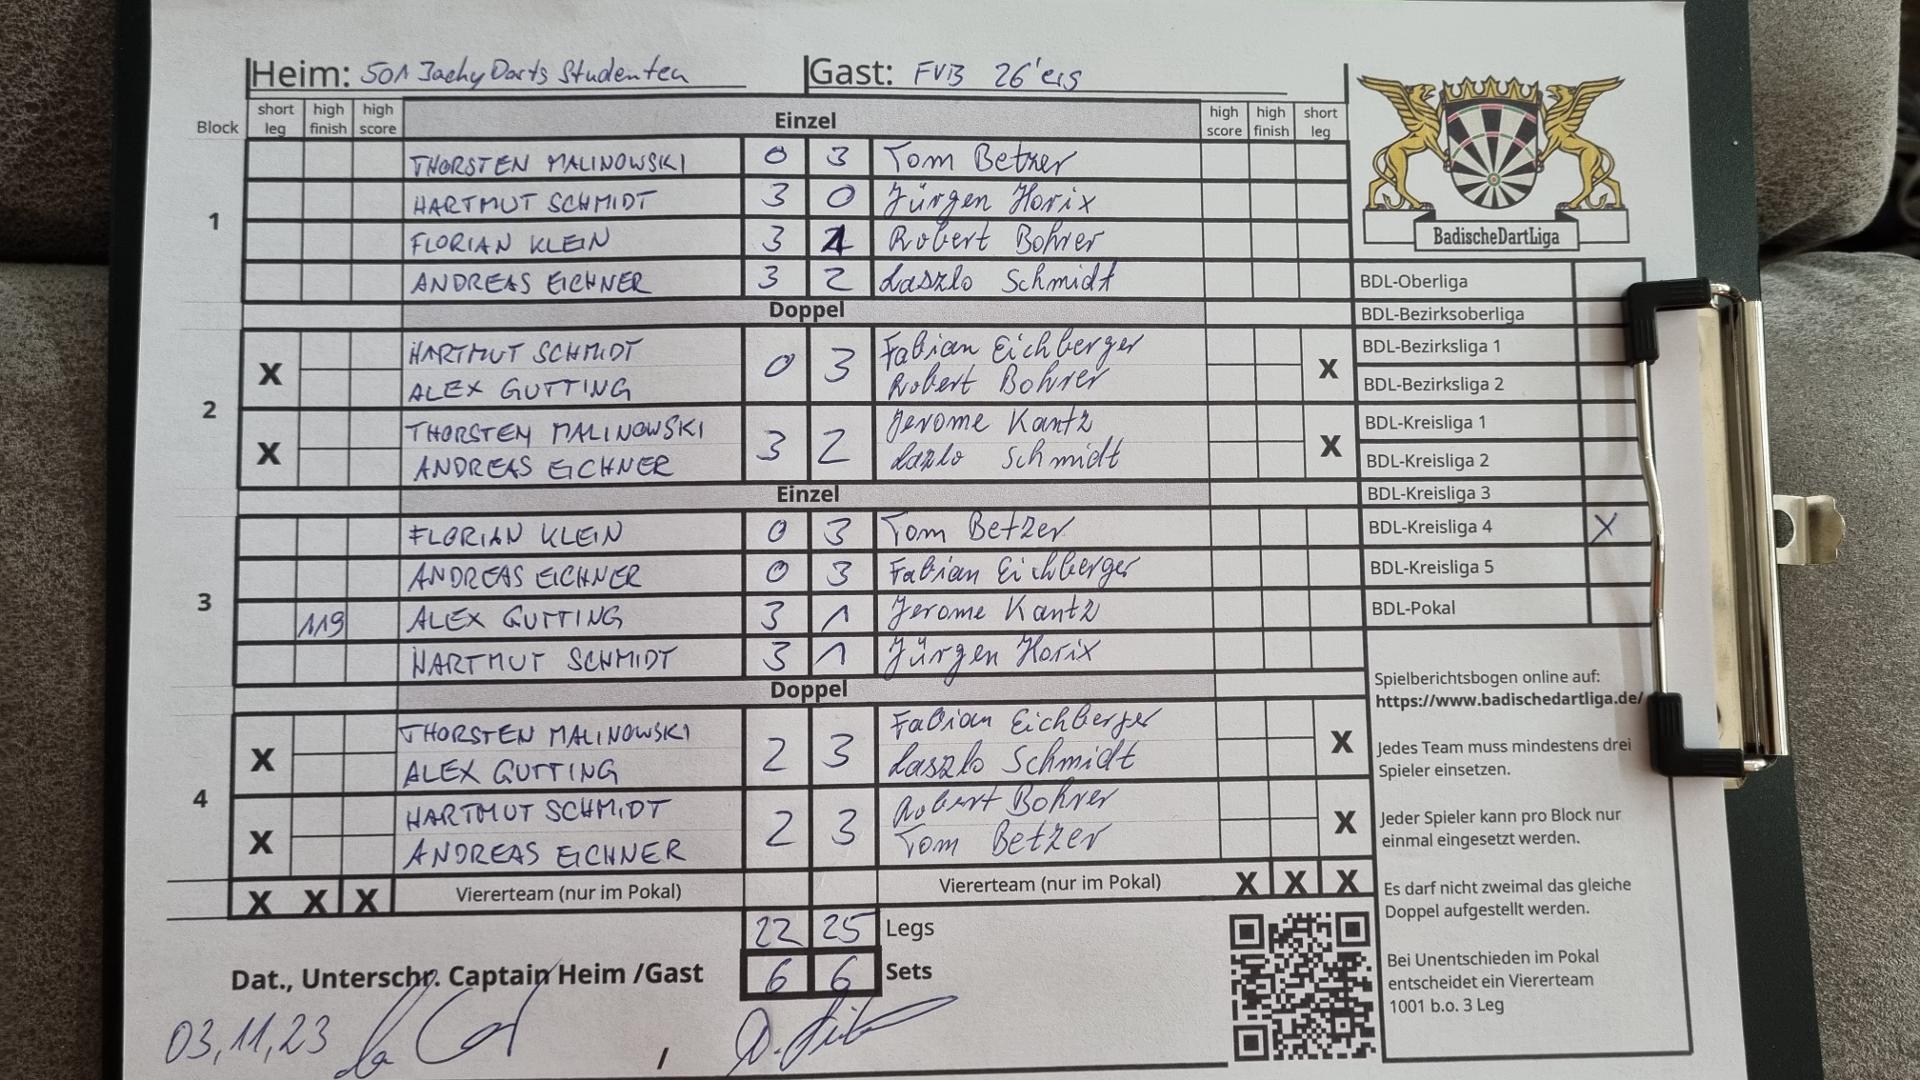 Heim: 501 Jachy Darts Studenten Gast: FVB 26'ers
Block short leg high finish high score Einzel high score high finish short leg
1
THORSTEN MALINOWSKI 0 3 Tom Betzer
HARTMUT SCHMIDT 3 0 Jürgen Horix
FLORIAN KLEIN 3 1 Robert Bohrer
ANDREAS EICHNER 3 2 Laszlo Schmidt
Doppel
2
X HARTMUT SCHMIDT 0 3 Fabian Eichberger X
ALEX GUTTING Robert Bohrer
X THORSTEN MALINOWSKI 3 2 Jerome Kantz X
ANDREAS EICHNER Lazlo Schmidt
Einzel
3
FLORIAN KLEIN 0 3 Tom Betzer
ANDREAS EICHNER 0 3 Fabian Eichberger
119 ALEX GUTTING 3 1 Jerome Kantz
HARTMUT SCHMIDT 3 1 Jürgen Horix
Doppel
4
X THORSTEN MALINOWSKI 2 3 Fabian Eichberger X
ALEX GUTTING Laszlo Schmidt
X HARTMUT SCHMIDT 2 3 Robert Bohrer X
ANDREAS EICHNER Tom Betzer
X X X Viererteam (nur im Pokal) Viererteam (nur im Pokal) X X X
22 25 Legs
Dat., Unterschr. Captain Heim /Gast 6 6 Sets
03,11,23 /
BadischeDartLiga
BDL-Oberliga
BDL-Bezirksoberliga
BDL-Bezirksliga 1
BDL-Bezirksliga 2
BDL-Kreisliga 1
BDL-Kreisliga 2
BDL-Kreisliga 3
BDL-Kreisliga 4 X
BDL-Kreisliga 5
BDL-Pokal
Spielberichtsbogen online auf:
https://www.badischedartliga.de/
Jedes Team muss mindestens drei
Spieler einsetzen.
Jeder Spieler kann pro Block nur
einmal eingesetzt werden.
Es darf nicht zweimal das gleiche
Doppel aufgestellt werden.
Bei Unentschieden im Pokal
entscheidet ein Viererteam
1001 b.o. 3 Leg